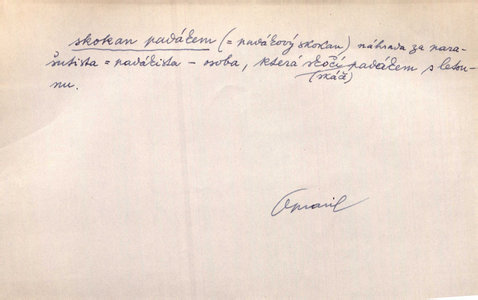 skokan padákem (= padákový skokan) náhrada za para-
šutista = padákista – osoba, která skočí padákem s letou-
(skáče)
nu.